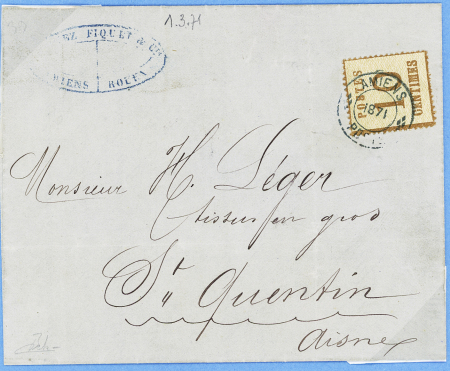 1.3.71
EZ FIQUET & Cie
MIENS ROUEN
POSTES
10
CENTIMES
AMIENS
1871
Monsieur H. Léger
tissus en gros
St Quentin
Aisne